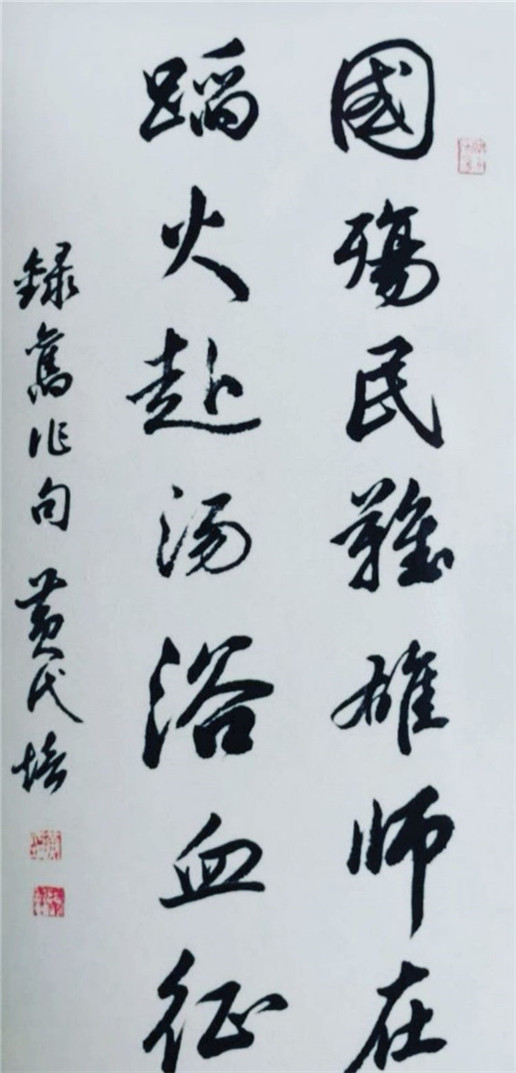 國殤民難雄师在
蹈火赴湯浴血征
録舊作句 黄代培